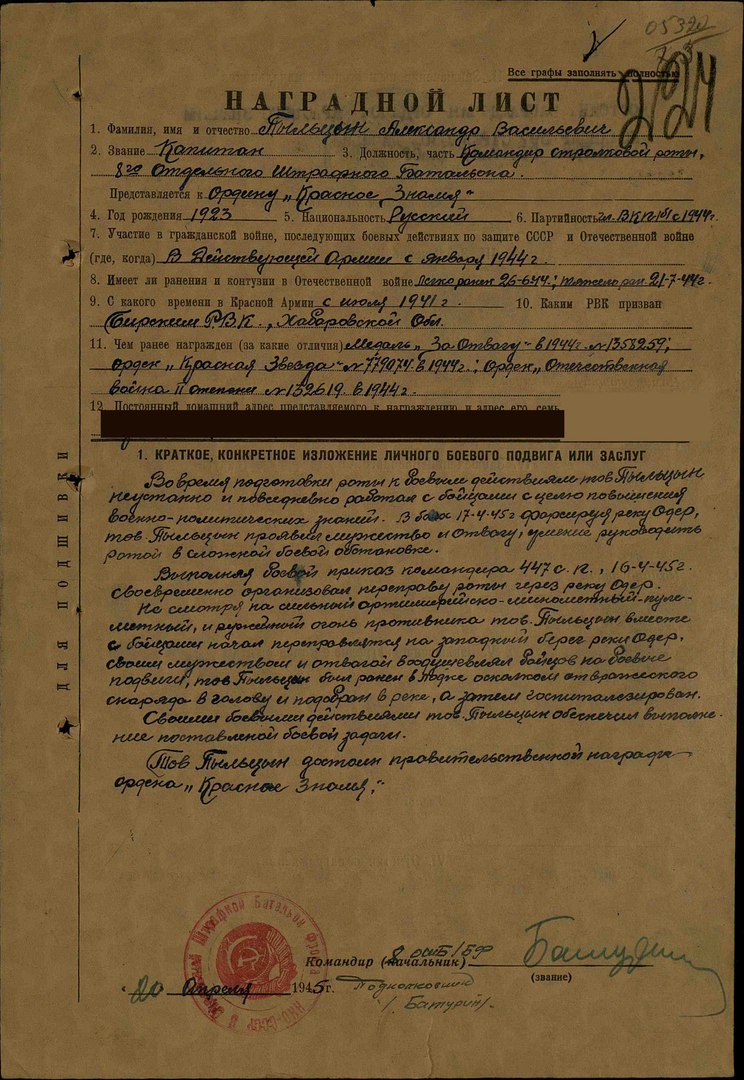 05370
Все графы заполнять полностью
224
НАГРАДНОЙ ЛИСТ
1. Фамилия, имя и отчество Пыльцын Александр Васильевич
2. Звание Капитан 3. Должность, часть Командир стрелковой роты,
8го Отдельного Штрафного Батальона.
Представляется к Ордену „Красное Знамя"
4. Год рождения 1923 5. Национальность Русский 6. Партийность чл. ВКП(б) с 1944г.
7. Участие в гражданской войне, последующих боевых действиях по защите СССР и Отечественной войне
(где, когда) В Действующей Армии с января 1944г.
8. Имеет ли ранения и контузии в Отечественной войне Легко ранен 26-6-44г.; тяжело ран. 21-7-44г.
9. С какого времени в Красной Армии с июля 1941г. 10. Каким РВК призван
Бирским РВК., Хабаровской Обл.
11. Чем ранее награжден (за какие отличия) Медаль „За Отвагу" в 1944г. №1358259;
орден „Красная Звезда" №779074 в 1944г.; Орден „Отечественная
война II степени №132619. в 1944г.
12. Постоянный домашний адрес представляемого к награждению и адрес его семь
1. КРАТКОЕ, КОНКРЕТНОЕ ИЗЛОЖЕНИЕ ЛИЧНОГО БОЕВОГО ПОДВИГА ИЛИ ЗАСЛУГ
Во время подготовки роты к боевым действиям тов Пыльцын
неустанно и повседневно работал с бойцами с целью повышения
военно-политических знаний. В боях 17-4-45г форсируя реку Одер,
тов. Пыльцын проявил мужество и Отвагу, умение руководить
ротой в сложной боевой обстановке.
Выполняя боевой приказ командира 447 с.п., 16-4-45г.
своевременно организовал переправу роты через реку Одер.
Не смотря на сильный артиллерийско-минометный-пуле-
метный, и ружейный огонь противника тов. Пыльцын вместе
с бойцами начал переправлятся на западный берег реки Одер,
своим мужеством и отвагой воодушевлял бойцов на боевые
подвиги, тов Пыльцын был ранен в лодке осколком от вражеского
снаряда в голову и подобран в реке, а затем госпитализирован.
Своими боевыми действиями тов. Пыльцын обеспечил выполне-
ние поставленой боевой задачи.
Тов Пыльцын достоин правительственной награды
ордена „Красное Знамя".
ДЛЯ ПОДШИВКИ
Штрафной Батальон Фронта
НКО-СССР
Командир (начальник) 8 ошб 1БФ
(звание)
20 Апреля 1945г.
Подполковник
/Батурин/.